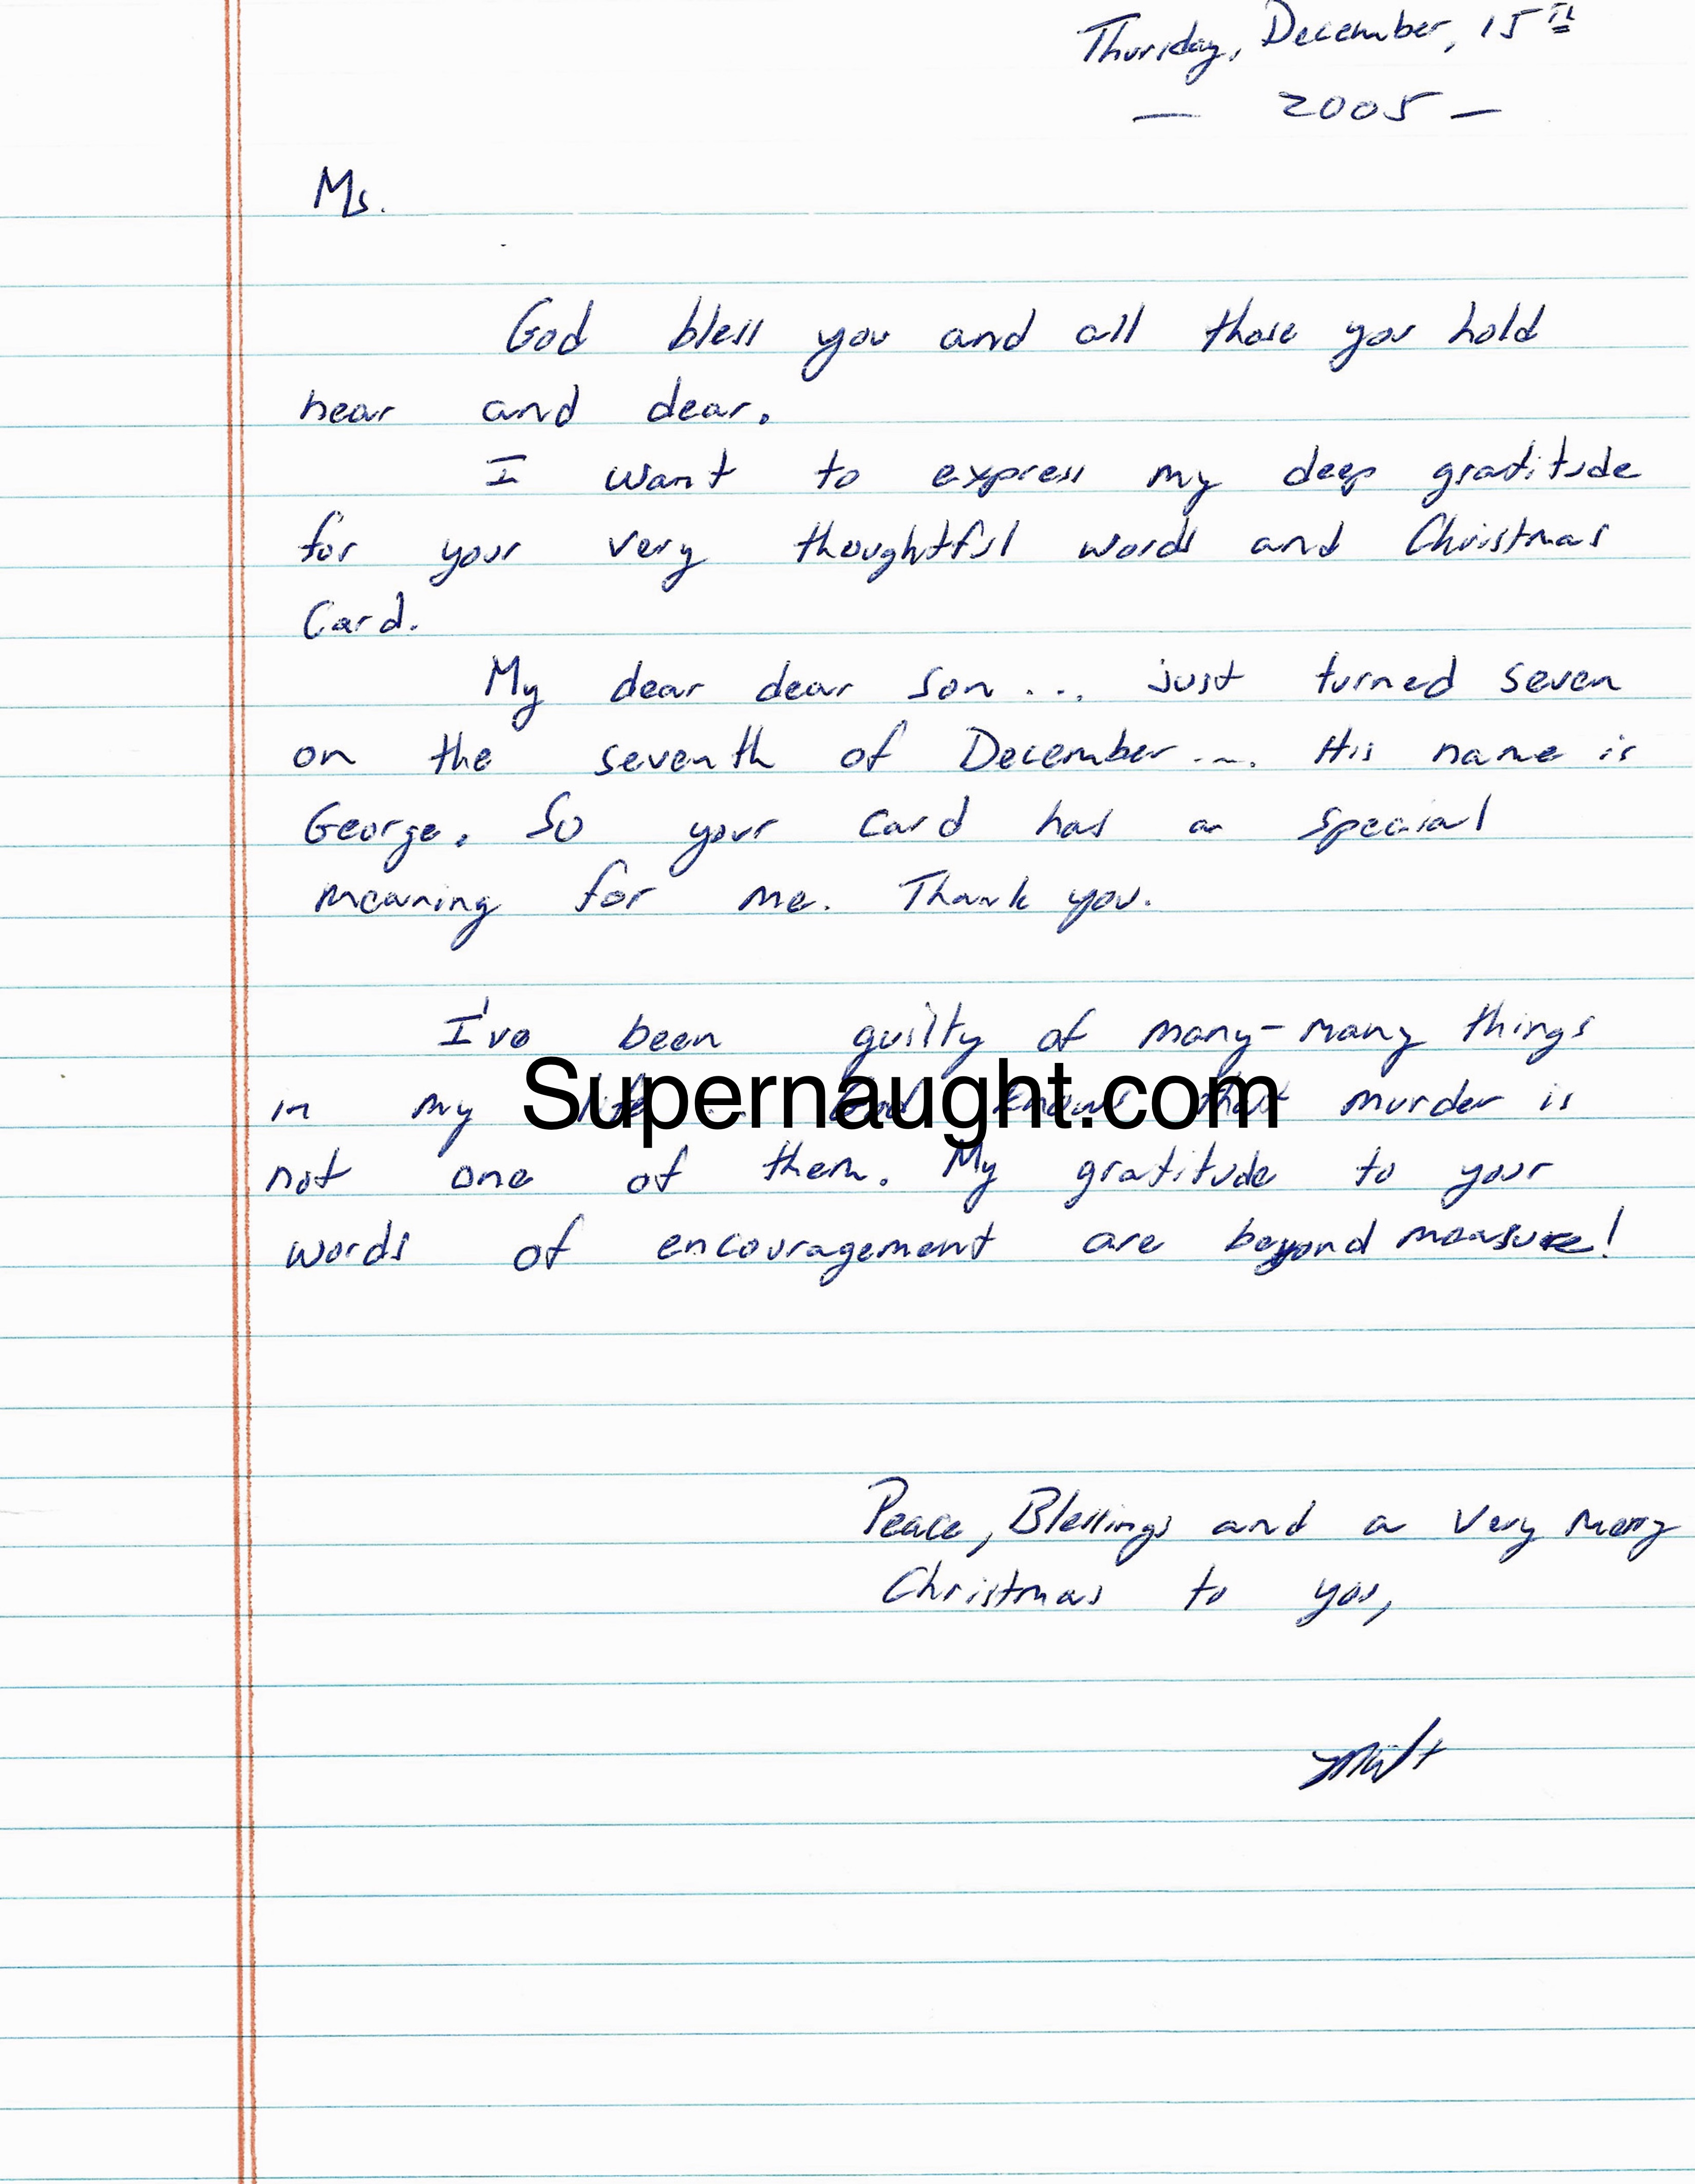 Thursday, December, 15th
— 2005 —
Ms.
God bless you and all those you hold
near and dear.
I want to express my deep gratitude
for your very thoughtful words and Christmas
Card.
My dear dear son... just turned seven
on the seventh of December.... His name is
George. So your card has a special
meaning for me. Thank you.
I've been guilty of many-many things
in my life... God knows that murder is
Supernaught.com
not one of them. My gratitude to your
words of encouragement are beyond measure!
Peace, Blessings and a Very Merry
Christmas to you,